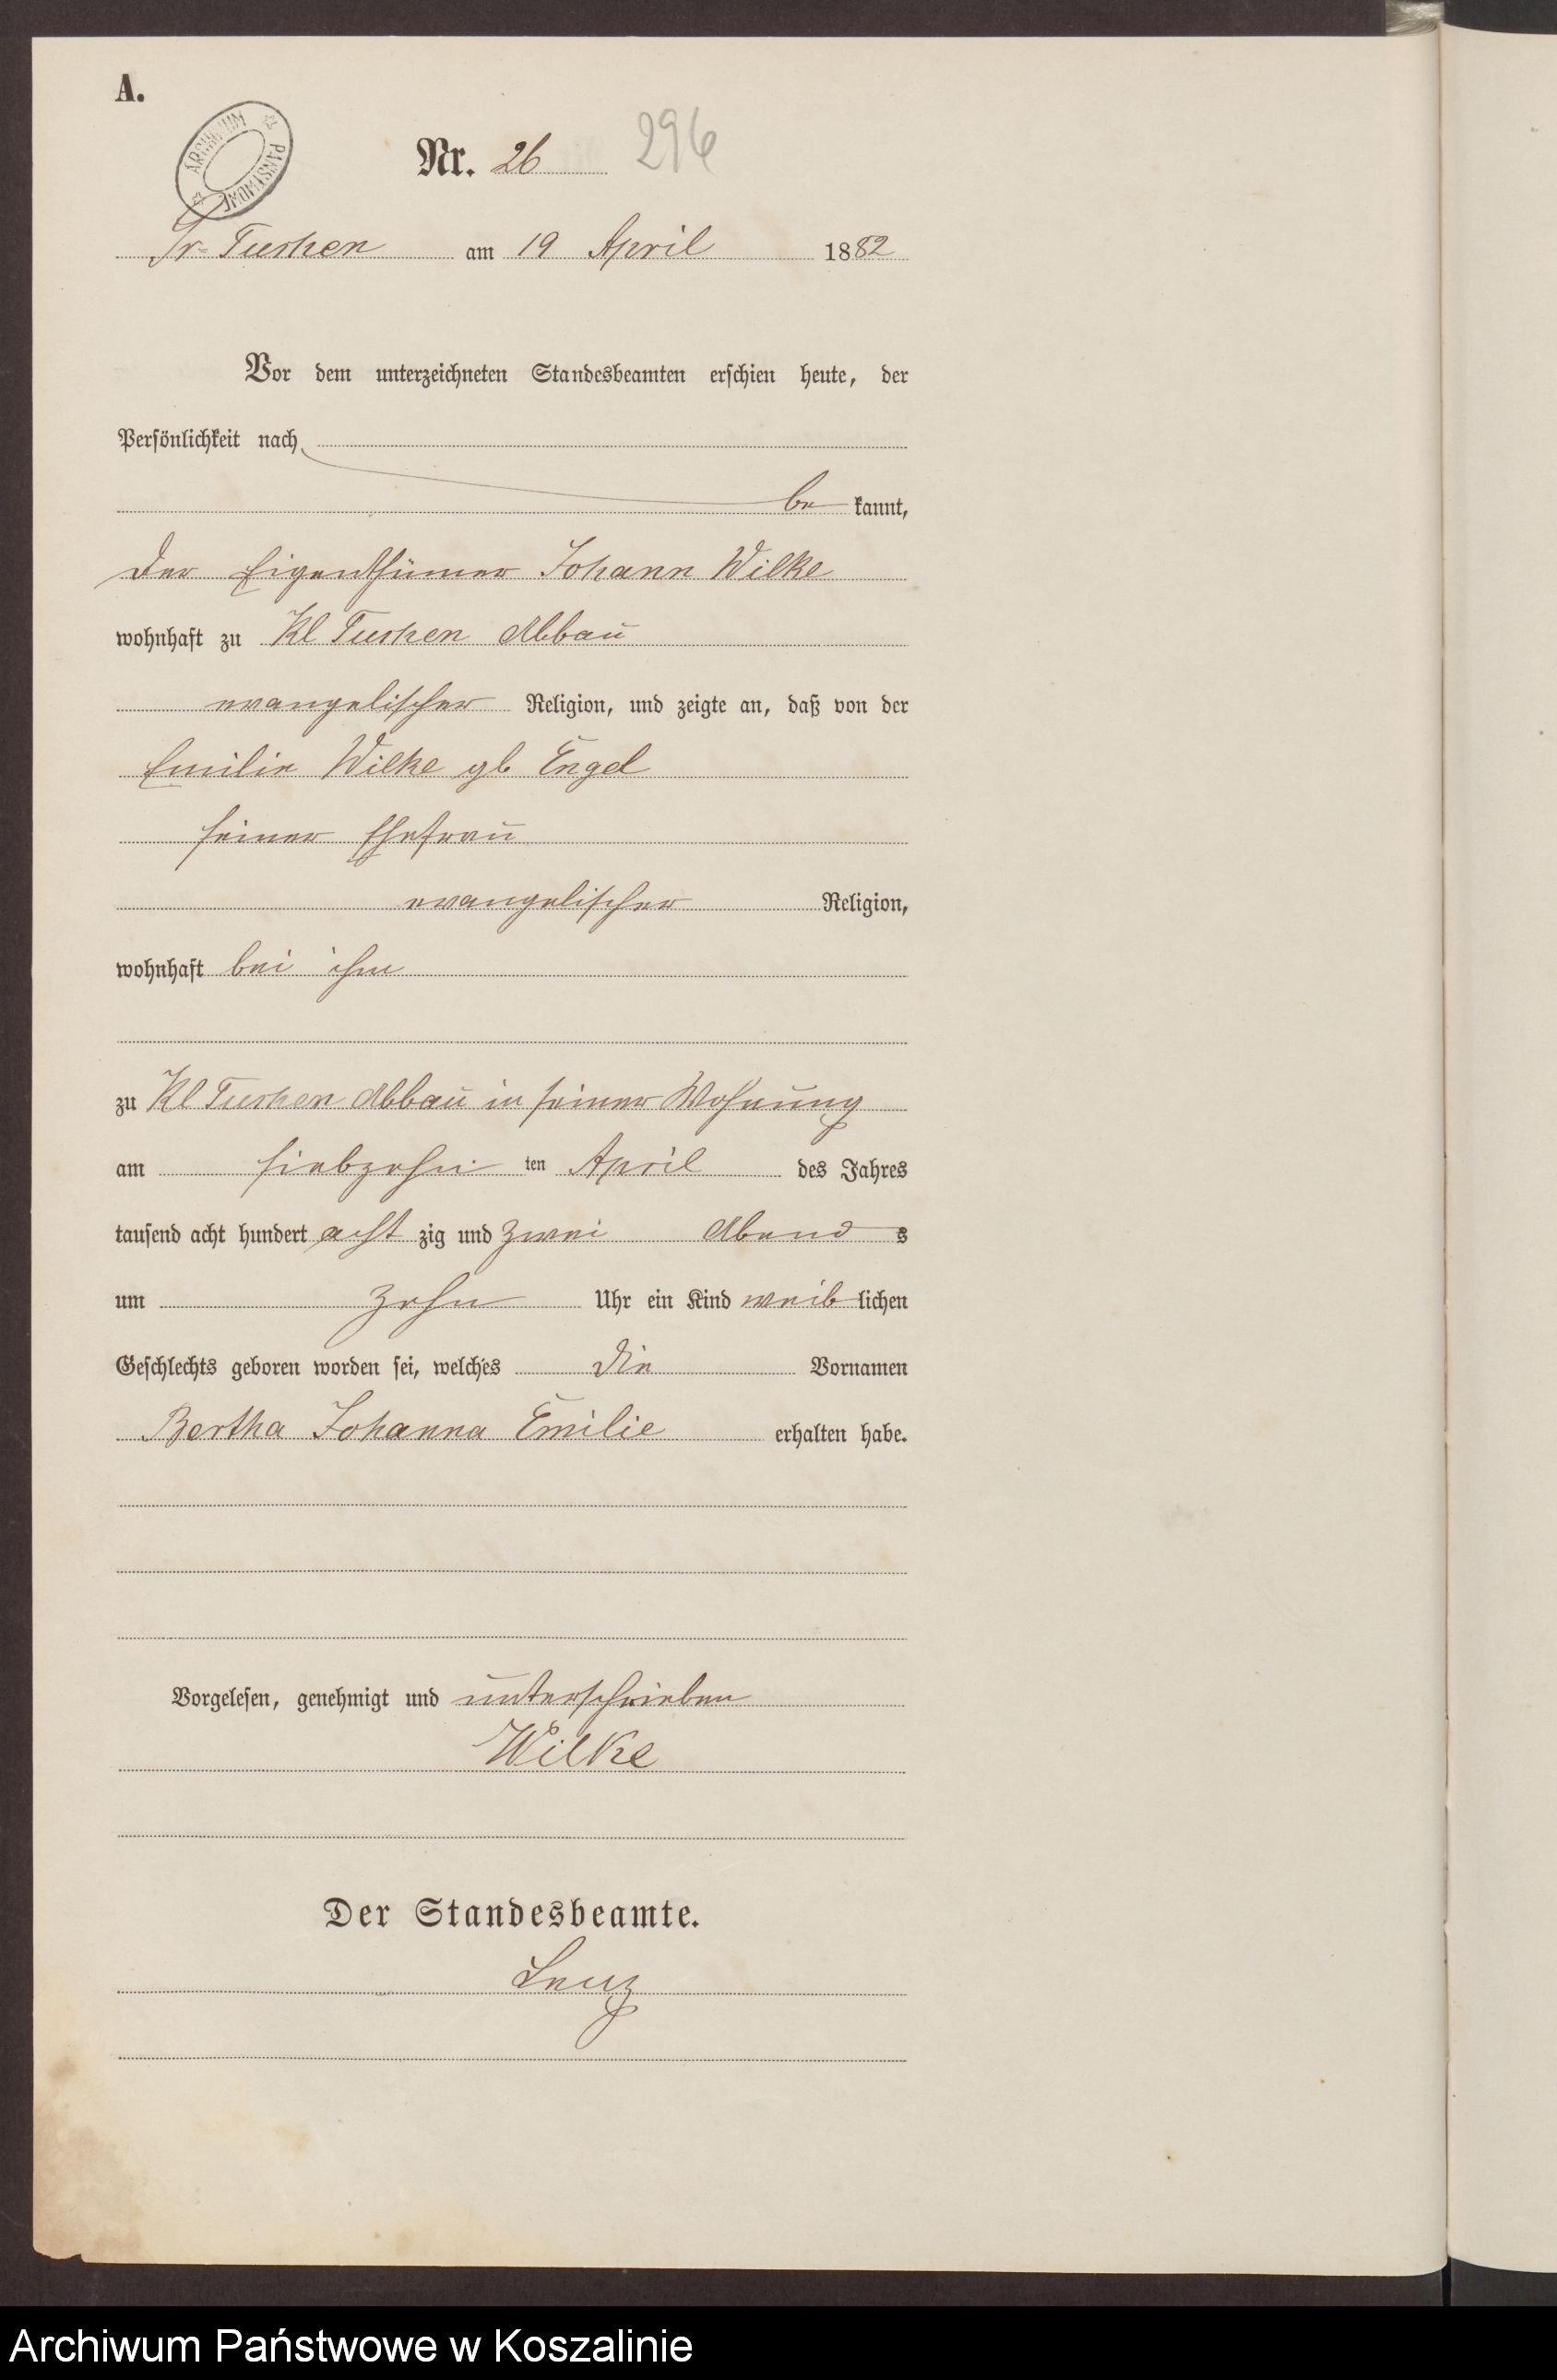 A.
ARCHIWUM PAŃSTWOWE
Nr. 26 296
Gr. Tuchen am 19 April 1882
Vor dem unterzeichneten Standesbeamten erschien heute, der
Persönlichkeit nach
be kannt,
der Eigenthümer Johann Wilke
wohnhaft zu Kl Tuchen Abbau
evangelischer Religion, und zeigte an, daß von der
Emilie Wilke gb Engel
seiner Ehefrau
evangelischer Religion,
wohnhaft bei ihm
zu Kl Tuchen Abbau in seiner Wohnung
am siebzehn ten April des Jahres
tausend acht hundert acht zig und zwei Abend s
um zehn Uhr ein Kind weib lichen
Geschlechts geboren worden sei, welches die Vornamen
Bertha Johanna Emilie erhalten habe.
Vorgelesen, genehmigt und unterschrieben
Wilke
Der Standesbeamte.
Lenz
Archiwum Państwowe w Koszalinie